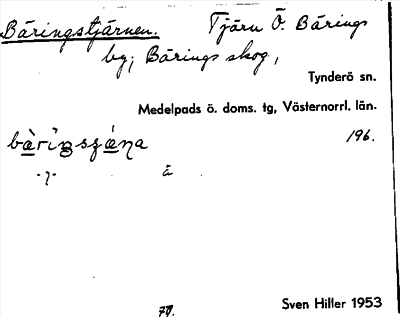 Bäringstjärnen. Tjärn Ö. Bärings
by, Bärings skog,
Tynderö sn.
Medelpads ö. doms. tg, Västernorrl. län.
196.
Sven Hiller 1953